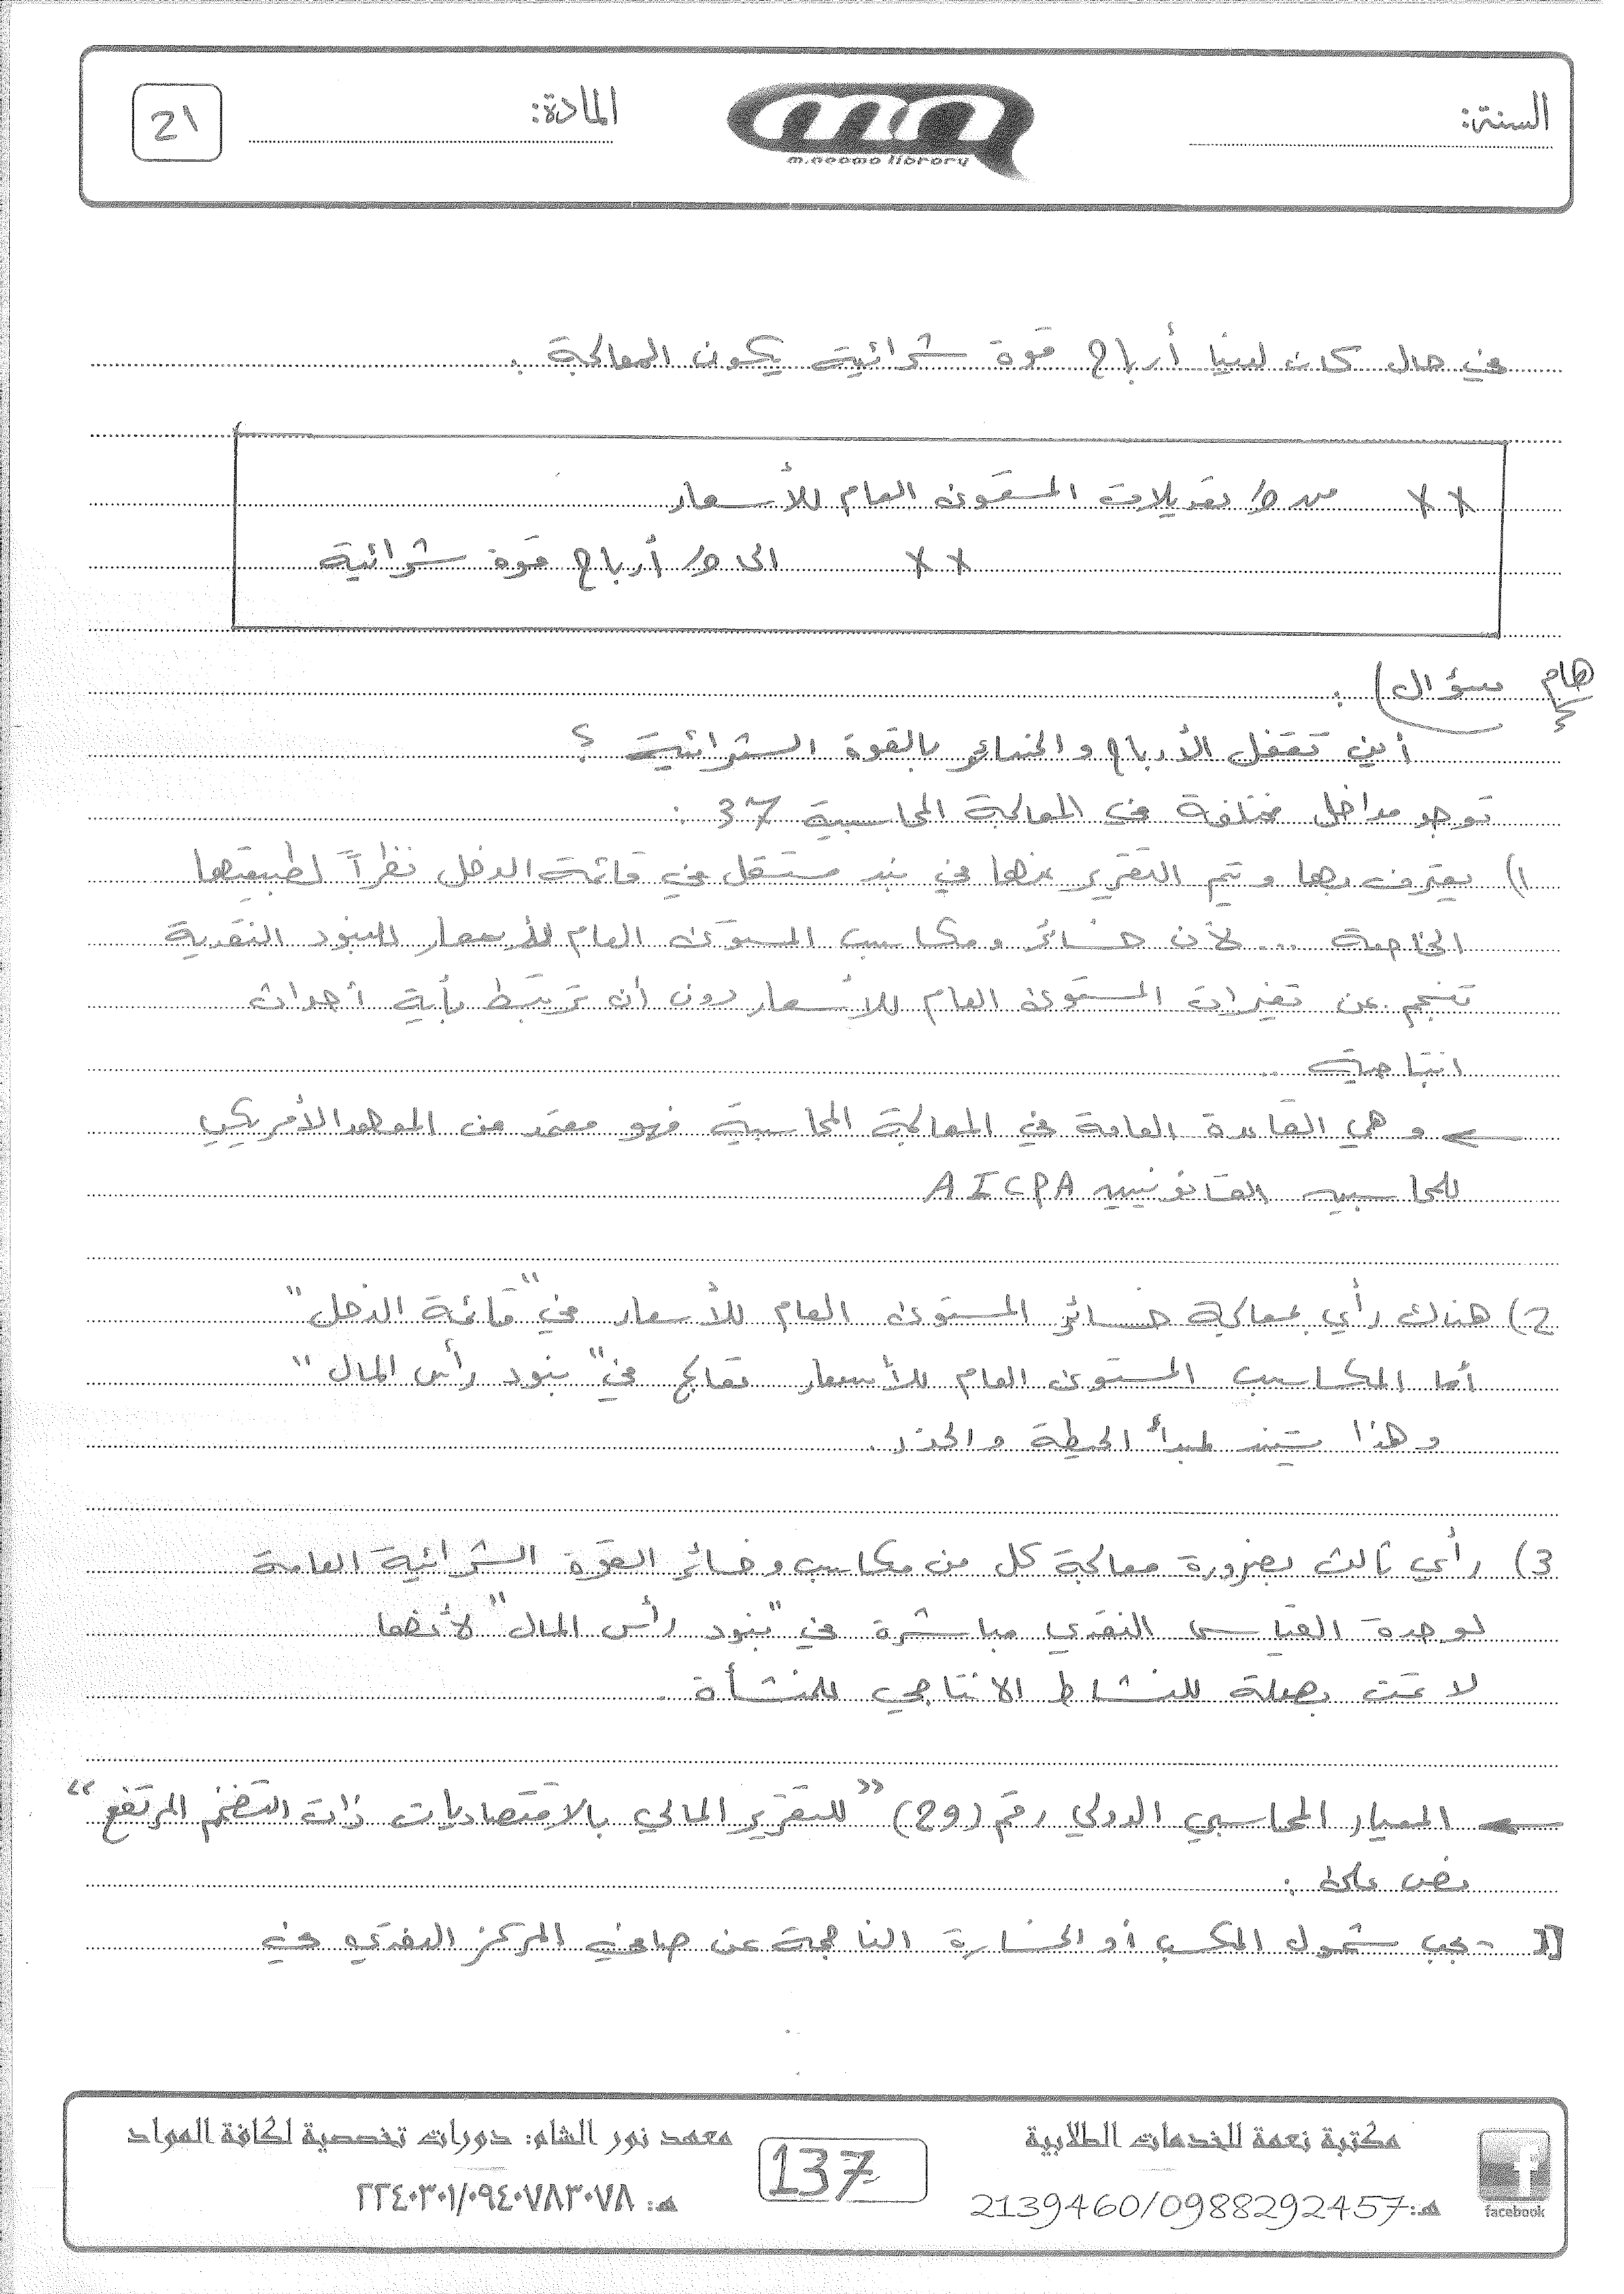 السنة:
المادة:
21
m.neama library
في حال كان لدينا أرباح قوة شرائية يكون المعالجة :
×× من ح/ تعديلات المستوى العام للأسعار
×× الى ح/ أرباح قوة شرائية
هام سؤال) :
أين تقفل الأرباح والخسائر بالقوة الشرائية ؟
توجد مداخل مختلفة في المعالجة المحاسبية 37 :
1) يعترف بها ويتم التقرير عنها في بند مستقل في قائمة الدخل نظراً لطبيعتها
الخاصة ... لأن خسائر ومكاسب المستوى العام للأسعار للبنود النقدية
تنجم عن تغيرات المستوى العام للأسعار دون أن ترتبط بأية أحداث
انتاجية ..
← وهي القاعدة العامة في المعالجة المحاسبية فهو معتمد من المعهد الأمريكي
للمحاسبين القانونيين AICPA
2) هناك رأي بمعالجة خسائر المستوى العام للأسعار في "قائمة الدخل"
أما المكاسب المستوى العام للأسعار تعالج في "بنود رأس المال"
وهذا يستند لمبدأ الحيطة والحذر.
3) رأي ثالث بضرورة معالجة كل من مكاسب وخسائر القوة الشرائية العامة
لوحدة القياس النقدي مباشرة في "بنود رأس المال" لأنهما
لا تمت بصلة للنشاط الانتاجي للمنشأة .
← المعيار المحاسبي الدولي رقم (29) "للتقرير المالي بالاقتصاديات ذات التضخم المرتفع"
نص على :
- يجب شمول المكسب أو الخسارة الناجمة عن صافي المركز النقدي في
مكتبة نعمة للخدمات الطلابية
هـ: 2139460/0988292457
facebook
137
معهد نور الشام: دورات تخصصية لكافة المواد
هـ: ٢٢٤٠٣٠١/٠٩٤٠٧٨٣٠٧٨